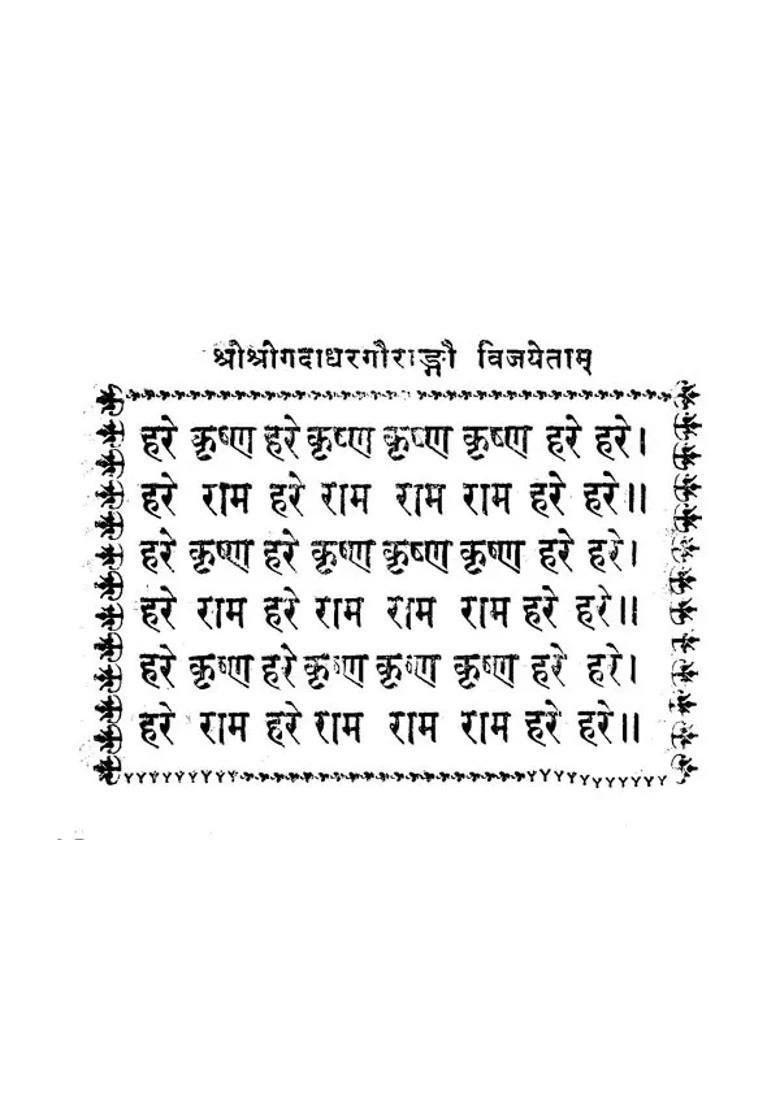 श्रीश्रीगदाधरगौराङ्गौ विजयेताम्
हरे कृष्ण हरे कृष्ण कृष्ण कृष्ण हरे हरे।
हरे राम हरे राम राम राम हरे हरे॥
हरे कृष्ण हरे कृष्ण कृष्ण कृष्ण हरे हरे।
हरे राम हरे राम राम राम हरे हरे॥
हरे कृष्ण हरे कृष्ण कृष्ण कृष्ण हरे हरे।
हरे राम हरे राम राम राम हरे हरे॥